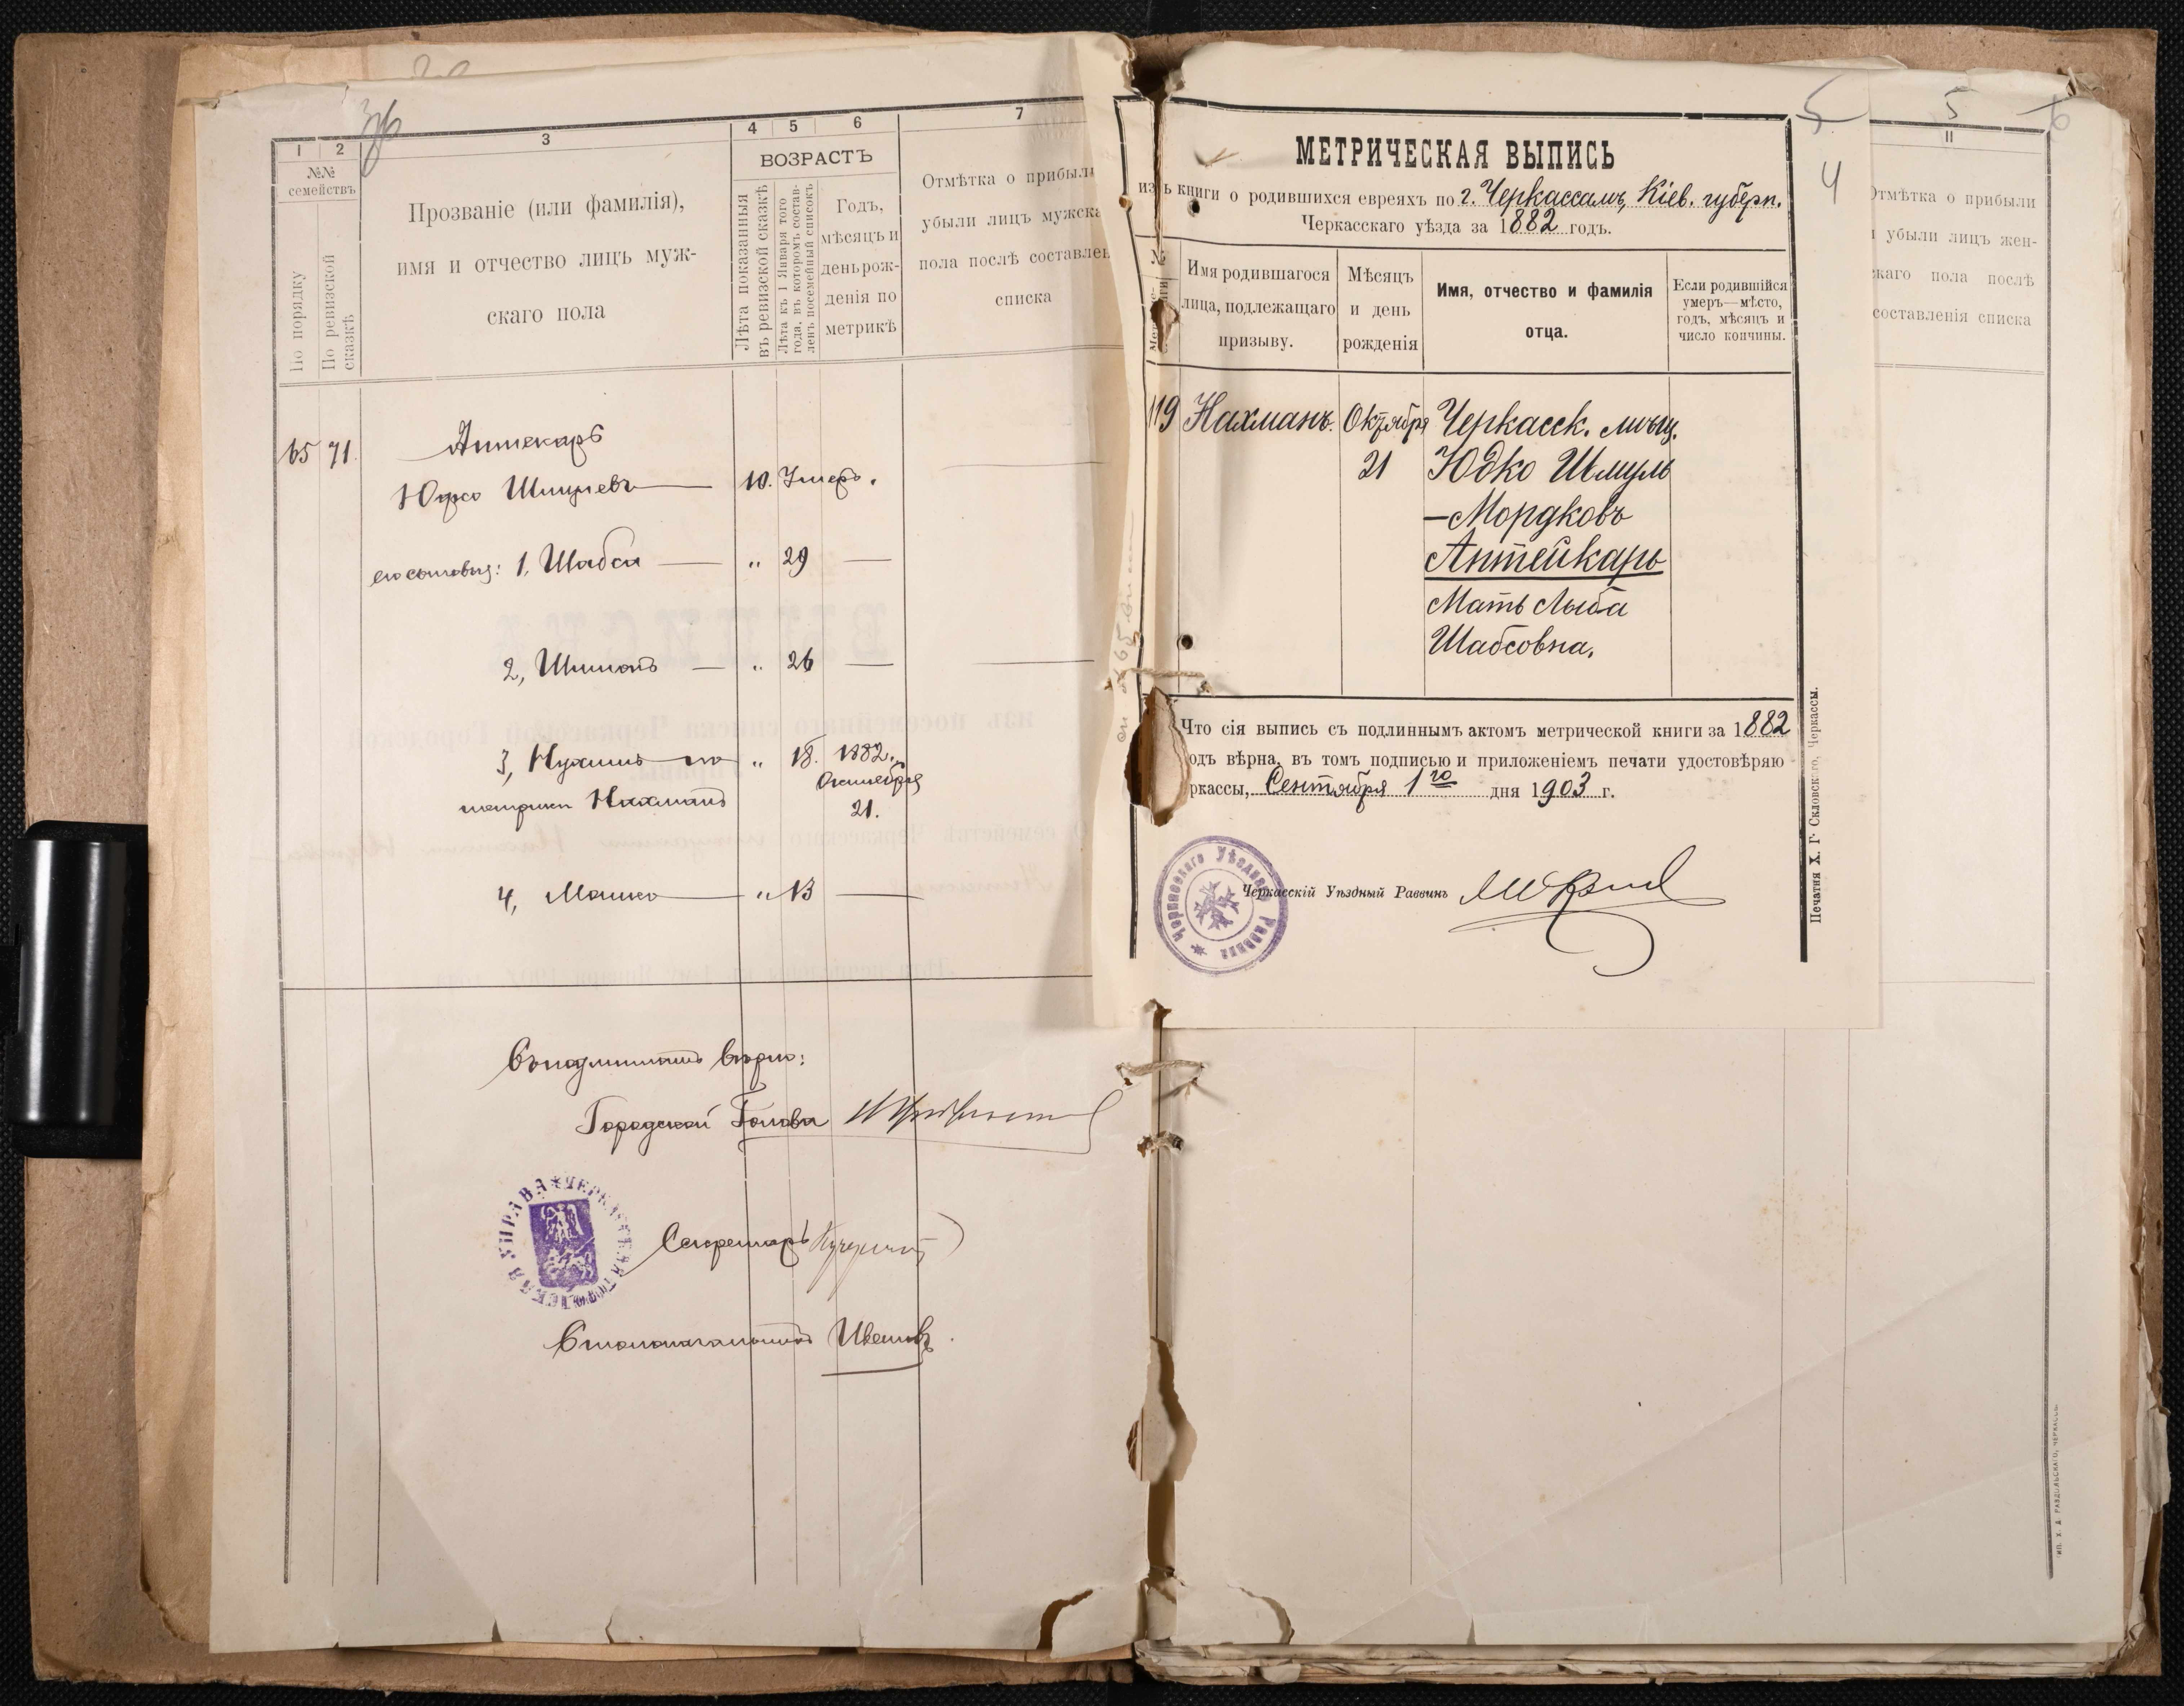 36
1
2
3
4
5
6
7
№№
семействъ
По порядку
По ревизской
сказкѣ
Прозваніе (или фамилія),
имя и отчество лицъ муж-
скаго пола
ВОЗРАСТЪ
Лѣта показанныя
въ ревизской сказкѣ
Лѣта къ 1 Января того
года, въ которомъ состав-
ленъ посемейный списокъ
Годъ,
мѣсяцъ и
день рож-
денія по
метрикѣ
Отмѣтка о прибыли
убыли лицъ мужска
пола послѣ составлен
списка
65 71.
Аптекарь
Юдко Шмулевъ — 10. Умеръ.
его сыновья: 1, Шабси — „ 29 —
2, Шимонъ — „ 26 —
3, Нухимъ по „ 18. 1882 г.
Октября
метрики Нахманъ
21.
4, Мошко — „ 13 —
Съ подлиннымъ вѣрно:
Городской Голова
Секретарь
Столоначальникъ Ивановъ.
ЧЕРКАССКАЯ ГОРОДСКАЯ УПРАВА
5
4
МЕТРИЧЕСКАЯ ВЫПИСЬ
изъ книги о родившихся евреяхъ по г. Черкассамъ, Кіев. губерн.
Черкасскаго уѣзда за 1882 годъ.
№
Имя родившагося
лица, подлежащаго
призыву.
Мѣсяцъ
и день
рожденія
Имя, отчество и фамилія
отца.
Если родившійся
умеръ—мѣсто,
годъ, мѣсяцъ и
число кончины.
119 Нахманъ. Октября Черкасск. мѣщ.
21 Юдко Шмуль
—Мордковъ
Аптейкарь
Мать Лыба
Шабсовна.
Что сія выпись съ подлиннымъ актомъ метрической книги за 1882
одъ вѣрна, въ томъ подписью и приложеніемъ печати удостовѣряю
ркассы, Сентября 1го дня 1903 г.
Черкасскій Уѣздный Раввинъ
Черкасскаго Уѣзднаго Раввина
Печатня Х. Г. Скловскаго, Черкассы.
5
6
11
Отмѣтка о прибыли
и убыли лицъ жен-
скаго пола послѣ
составленія списка